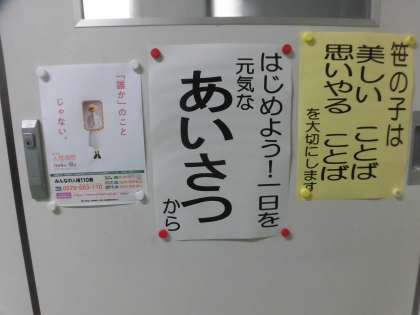 笹の子は
美しい ことば
思いやる ことば
を大切にします
はじめよう！一日を
元気な
あいさつ
から
「誰か」のこと
じゃない。
みんなの人権110番
0570-003-110